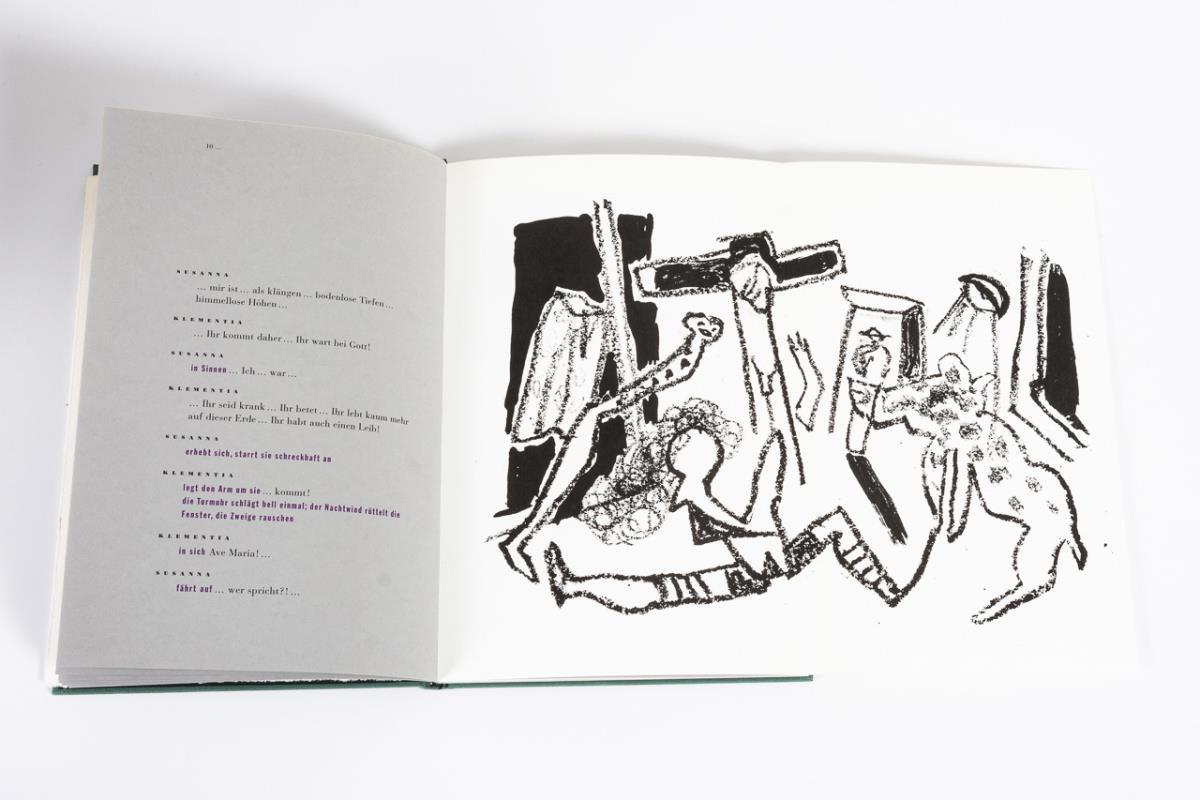 10 ...
SUSANNA
... mir ist ... als klängen ... bodenlose Tiefen ...
himmellose Höhen ...
KLEMENTIA
... Ihr kommt daher ... Ihr wart bei Gott!
SUSANNA
in Sinnen ... Ich ... war ...
KLEMENTIA
... Ihr seid krank ... Ihr betet ... Ihr lebt kaum mehr
auf dieser Erde ... Ihr habt auch einen Leib!
SUSANNA
erhebt sich, starrt sie schreckhaft an
KLEMENTIA
legt den Arm um sie ... kommt!
die Turmuhr schlägt hell einmal; der Nachtwind rüttelt die
Fenster, die Zweige rauschen
KLEMENTIA
in sich Ave Maria! ...
SUSANNA
fährt auf ... wer spricht?! ...